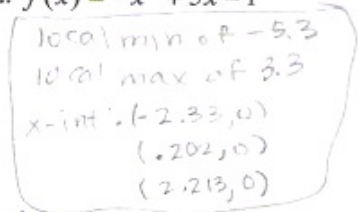 local min of -5.3
local max of 3.3
x-int: (-2.33,0)
(.202,0)
(2.213,0)